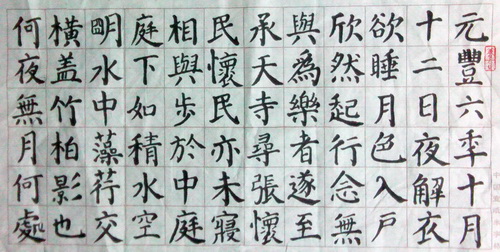 元豐六年十月
十二日夜解衣
欲睡月色入戶
欣然起行念無
與爲樂者遂至
承天寺尋張懷
民懷民亦未寢
相與步於中庭
庭下如積水空
明水中藻荇交
橫盖竹柏影也
何夜無月何處